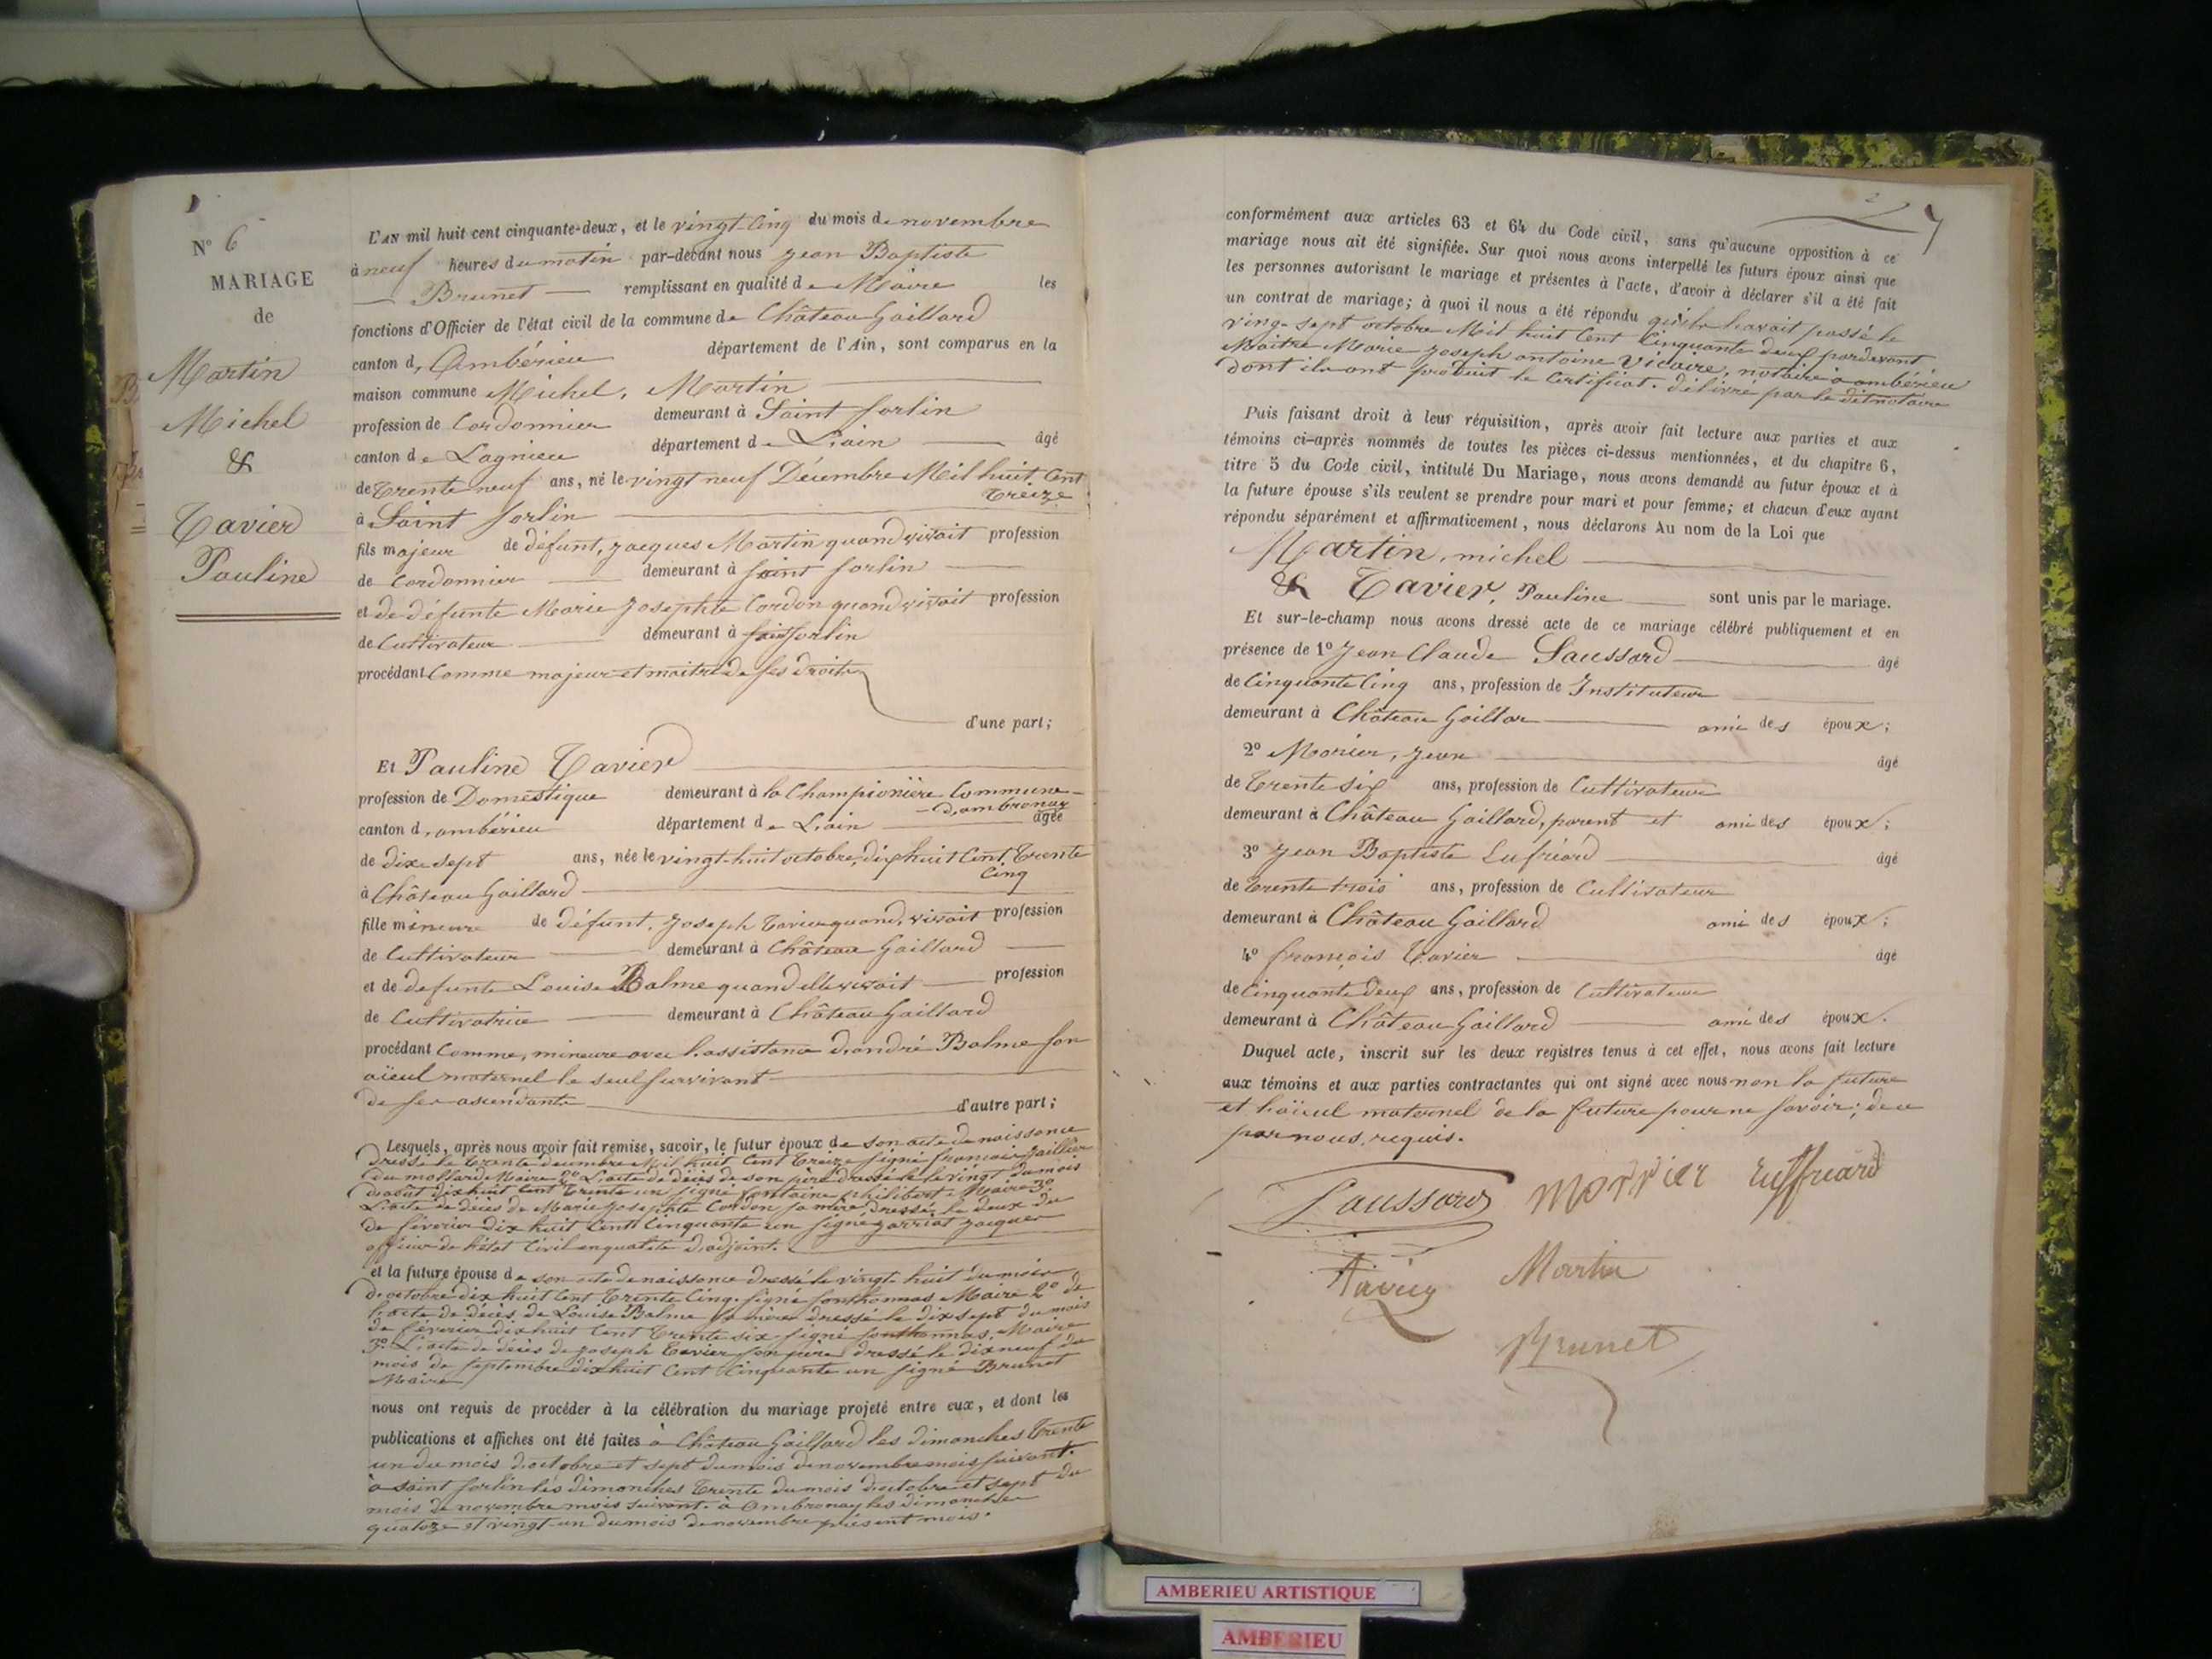 N° 6
MARIAGE
de
Martin
Michel
&
Tavier
Pauline
L'AN mil huit cent cinquante-deux, et le vingt-cinq du mois de novembre
à neuf heures du matin par-devant nous jean Baptiste
Brunet remplissant en qualité de Maire les
fonctions d'Officier de l'état civil de la commune de Château Gaillard
canton d, Ambérieu département de l'Ain, sont comparus en la
maison commune Michel, Martin
profession de Cordonnier demeurant à Saint Sorlin
canton de Lagnieu département de L'ain âgé
de trente neuf ans, né le vingt neuf Décembre Mil huit Cent
treize
à Saint Sorlin
fils majeur de défunt, jacques Martin quand vivait profession
de Cordonnier demeurant à saint Sorlin
et de défunte Marie josephte Cordon quand vivait profession
de Cultivateur demeurant à saint Sorlin
procédant Comme majeur et maitre de ses droits
d'une part;
Et Pauline Tavier
profession de Domestique demeurant à la Championière Commune
d'ambronay
canton d, ambérieu département de L'ain âgée
de dix-sept ans, née le vingt-huit octobre, dix huit Cent Trente
Cinq
à Château Gaillard
fille mineure de défunt, joseph Tavier quand, vivait profession
de Cultivateur demeurant à Château Gaillard
et de defunte Louise Balme quand elle vivait profession
de Cultivatrice demeurant à Château Gaillard
procédant Comme, mineure avec l'assistance d'andré Balme son
aïeul maternel le seul survivant
de ses ascendants d'autre part;
Lesquels, après nous avoir fait remise, savoir, le futur époux de son acte de naissance
dressé le trente decembre Mil huit Cent treize signé françois jaillier
du mollard Maire 2° L'acte de décès de son père dressé le vingt du mois
d'août dix huit Cent Trente un signé fontaine philibert Maire 3°
L'acte de décès de Marie josephte Cordon sa mère dressé le deux de
de février dix huit Cent Cinquante un signé jarriat jacques
officier de l'état Civil en qualité d'adjoint.
et la future épouse de son acte de naissance dressé le vingt-huit du mois
d'octobre dix huit Cent trente Cinq. signé fonthonnas Maire 2° de
l'acte de décès de Louise Balme sa mère dressé le dix sept du mois
de février dix huit Cent trente six signé fonthonnas, Maire
3° L'acte de décès de joseph Tavier son père dressé le dix neuf du
mois de septembre dix huit Cent Cinquante un signé Brunet
Maire
nous ont requis de procéder à la célébration du mariage projeté entre eux, et dont les
publications et affiches ont été faites à Château Gaillard les dimanches Trente
un du mois d'octobre et sept du mois de novembre mois suivant.
à saint sorlin les dimanches trente du mois d'octobre et sept du
mois de novembre mois suivant. à Ambronay les dimanches
quatorze et vingt-un du mois de novembre présent mois.
7
conformément aux articles 63 et 64 du Code civil, sans qu'aucune opposition à ce
mariage nous ait été signifiée. Sur quoi nous avons interpellé les futurs époux ainsi que
les personnes autorisant le mariage et présentes à l'acte, d'avoir à déclarer s'il a été fait
un contrat de mariage; à quoi il nous a été répondu qu'ils l'avait passé le
vingt-sept octobre Mil huit Cent Cinquante deux pardevant
Maître Marie joseph antoine Vicaire, notaire à ambérieu
dont ils ont produit le Certificat. délivré par le dit notaire
Puis faisant droit à leur réquisition, après avoir fait lecture aux parties et aux
témoins ci-après nommés de toutes les pièces ci-dessus mentionnées, et du chapitre 6,
titre 5 du Code civil, intitulé Du Mariage, nous avons demandé au futur époux et à
la future épouse s'ils veulent se prendre pour mari et pour femme; et chacun d'eux ayant
répondu séparément et affirmativement, nous déclarons Au nom de la Loi que
Martin, michel
& Tavier, Pauline sont unis par le mariage.
Et sur-le-champ nous avons dressé acte de ce mariage célébré publiquement et en
présence de 1° Jean Claude Saussard âgé
de Cinquante Cinq ans, profession de Instituteur
demeurant à Château Gaillar ami des époux;
2° Morier, jean âgé
de trente six ans, profession de Cultivateur
demeurant à Château Gaillard, parent et ami des époux;
3° Jean Baptiste Eufréard âgé
de trente trois ans, profession de Cultivateur
demeurant à Château Gaillard ami des époux;
4° françois Tavier âgé
de Cinquante deux ans, profession de Cultivateur
demeurant à Château Gaillard ami des époux.
Duquel acte, inscrit sur les deux registres tenus à cet effet, nous avons fait lecture
aux témoins et aux parties contractantes qui ont signé avec nous non la future
et l'aïeul maternel de la future pour ne savoir; de ce
par nous, requis.
Saussard Morrier Euffreard
Tavier Martin
Brunet
AMBERIEU ARTISTIQUE
AMBERIEU